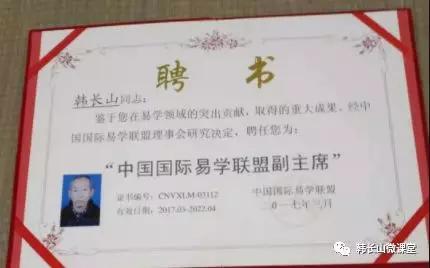 聘书
韩长山同志:
鉴于您在易学领域的突出贡献,取得的重大成果。经中
国国际易学联盟理事会研究决定,聘任您为:
“中国国际易学联盟副主席”
证书编号:CNYXLM-03112
中国国际易学联盟
有效日期:2017.03-2022.04
0一七年三月
韩长山微课堂